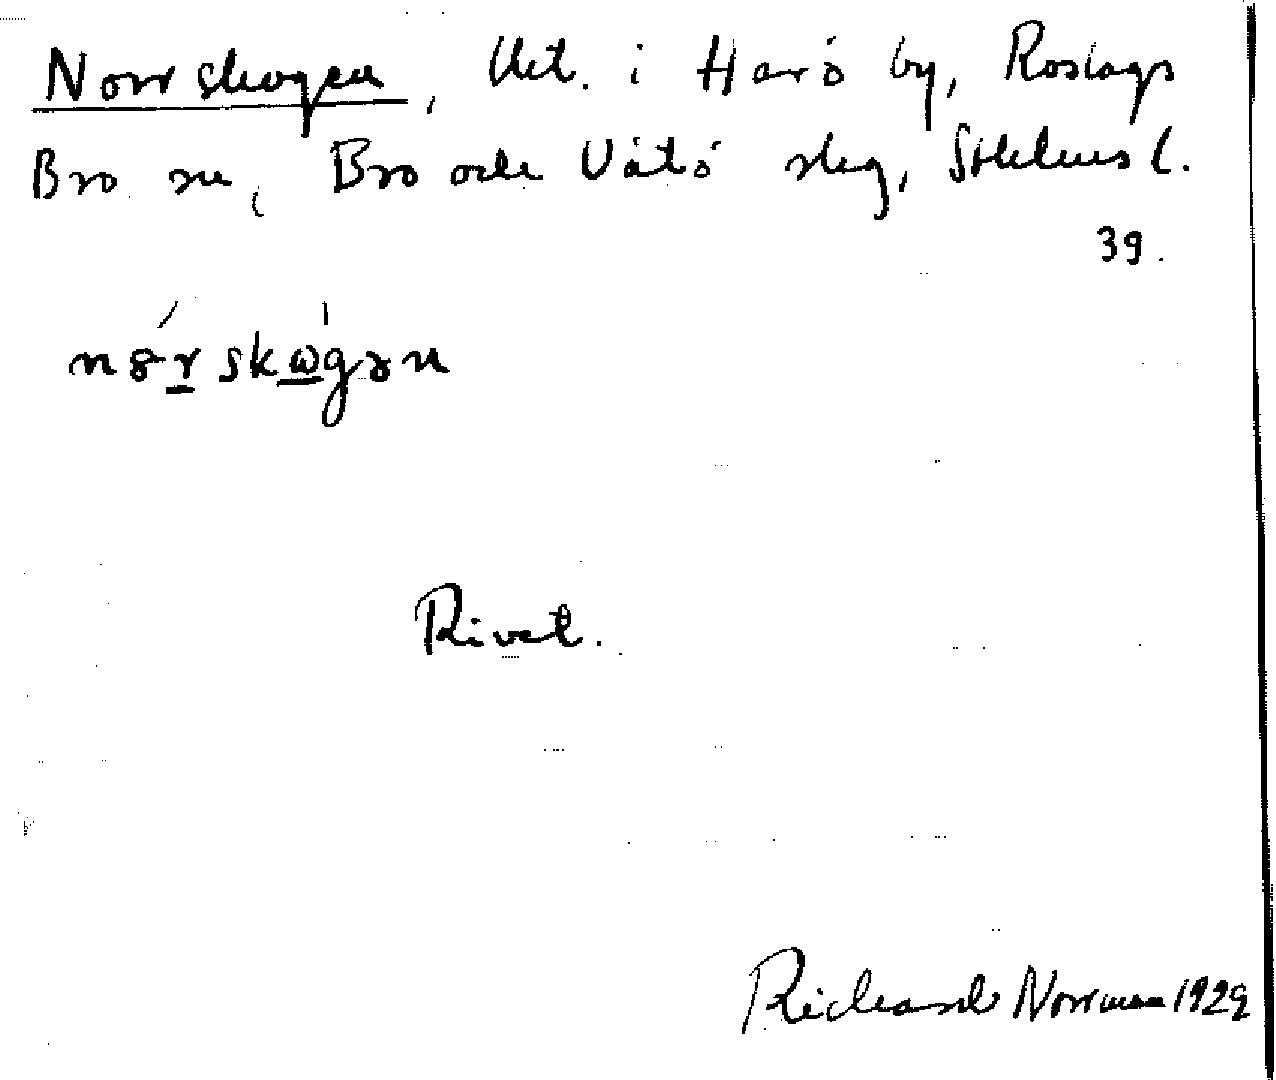 Norrskogen, Utt. i Harö by, Roslags
Bro sn, Bro och Vätö skg, Sthlms l.
39.
Rivet.
Richard Norrman 1929